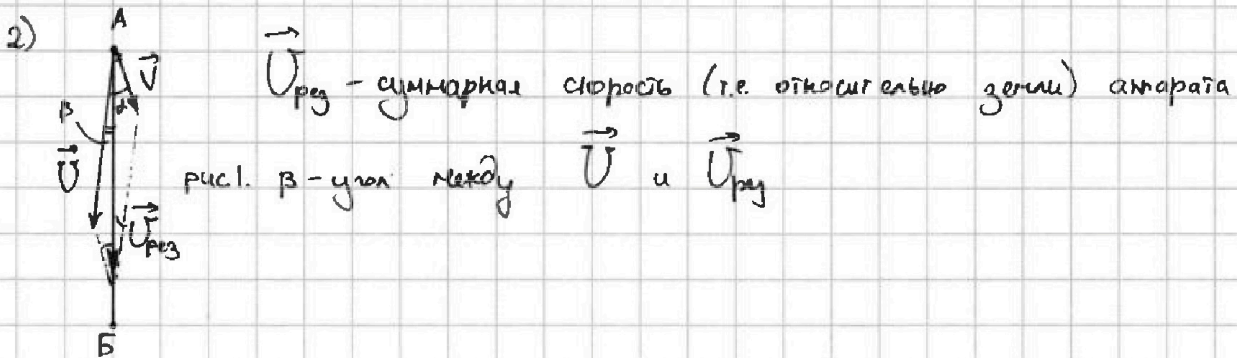 2)
А
V
α
β
U
Uрез
Б
Uрез - суммарная скорость (т.е. относительно земли) аппарата
рис1. β - угол между U и Uрез